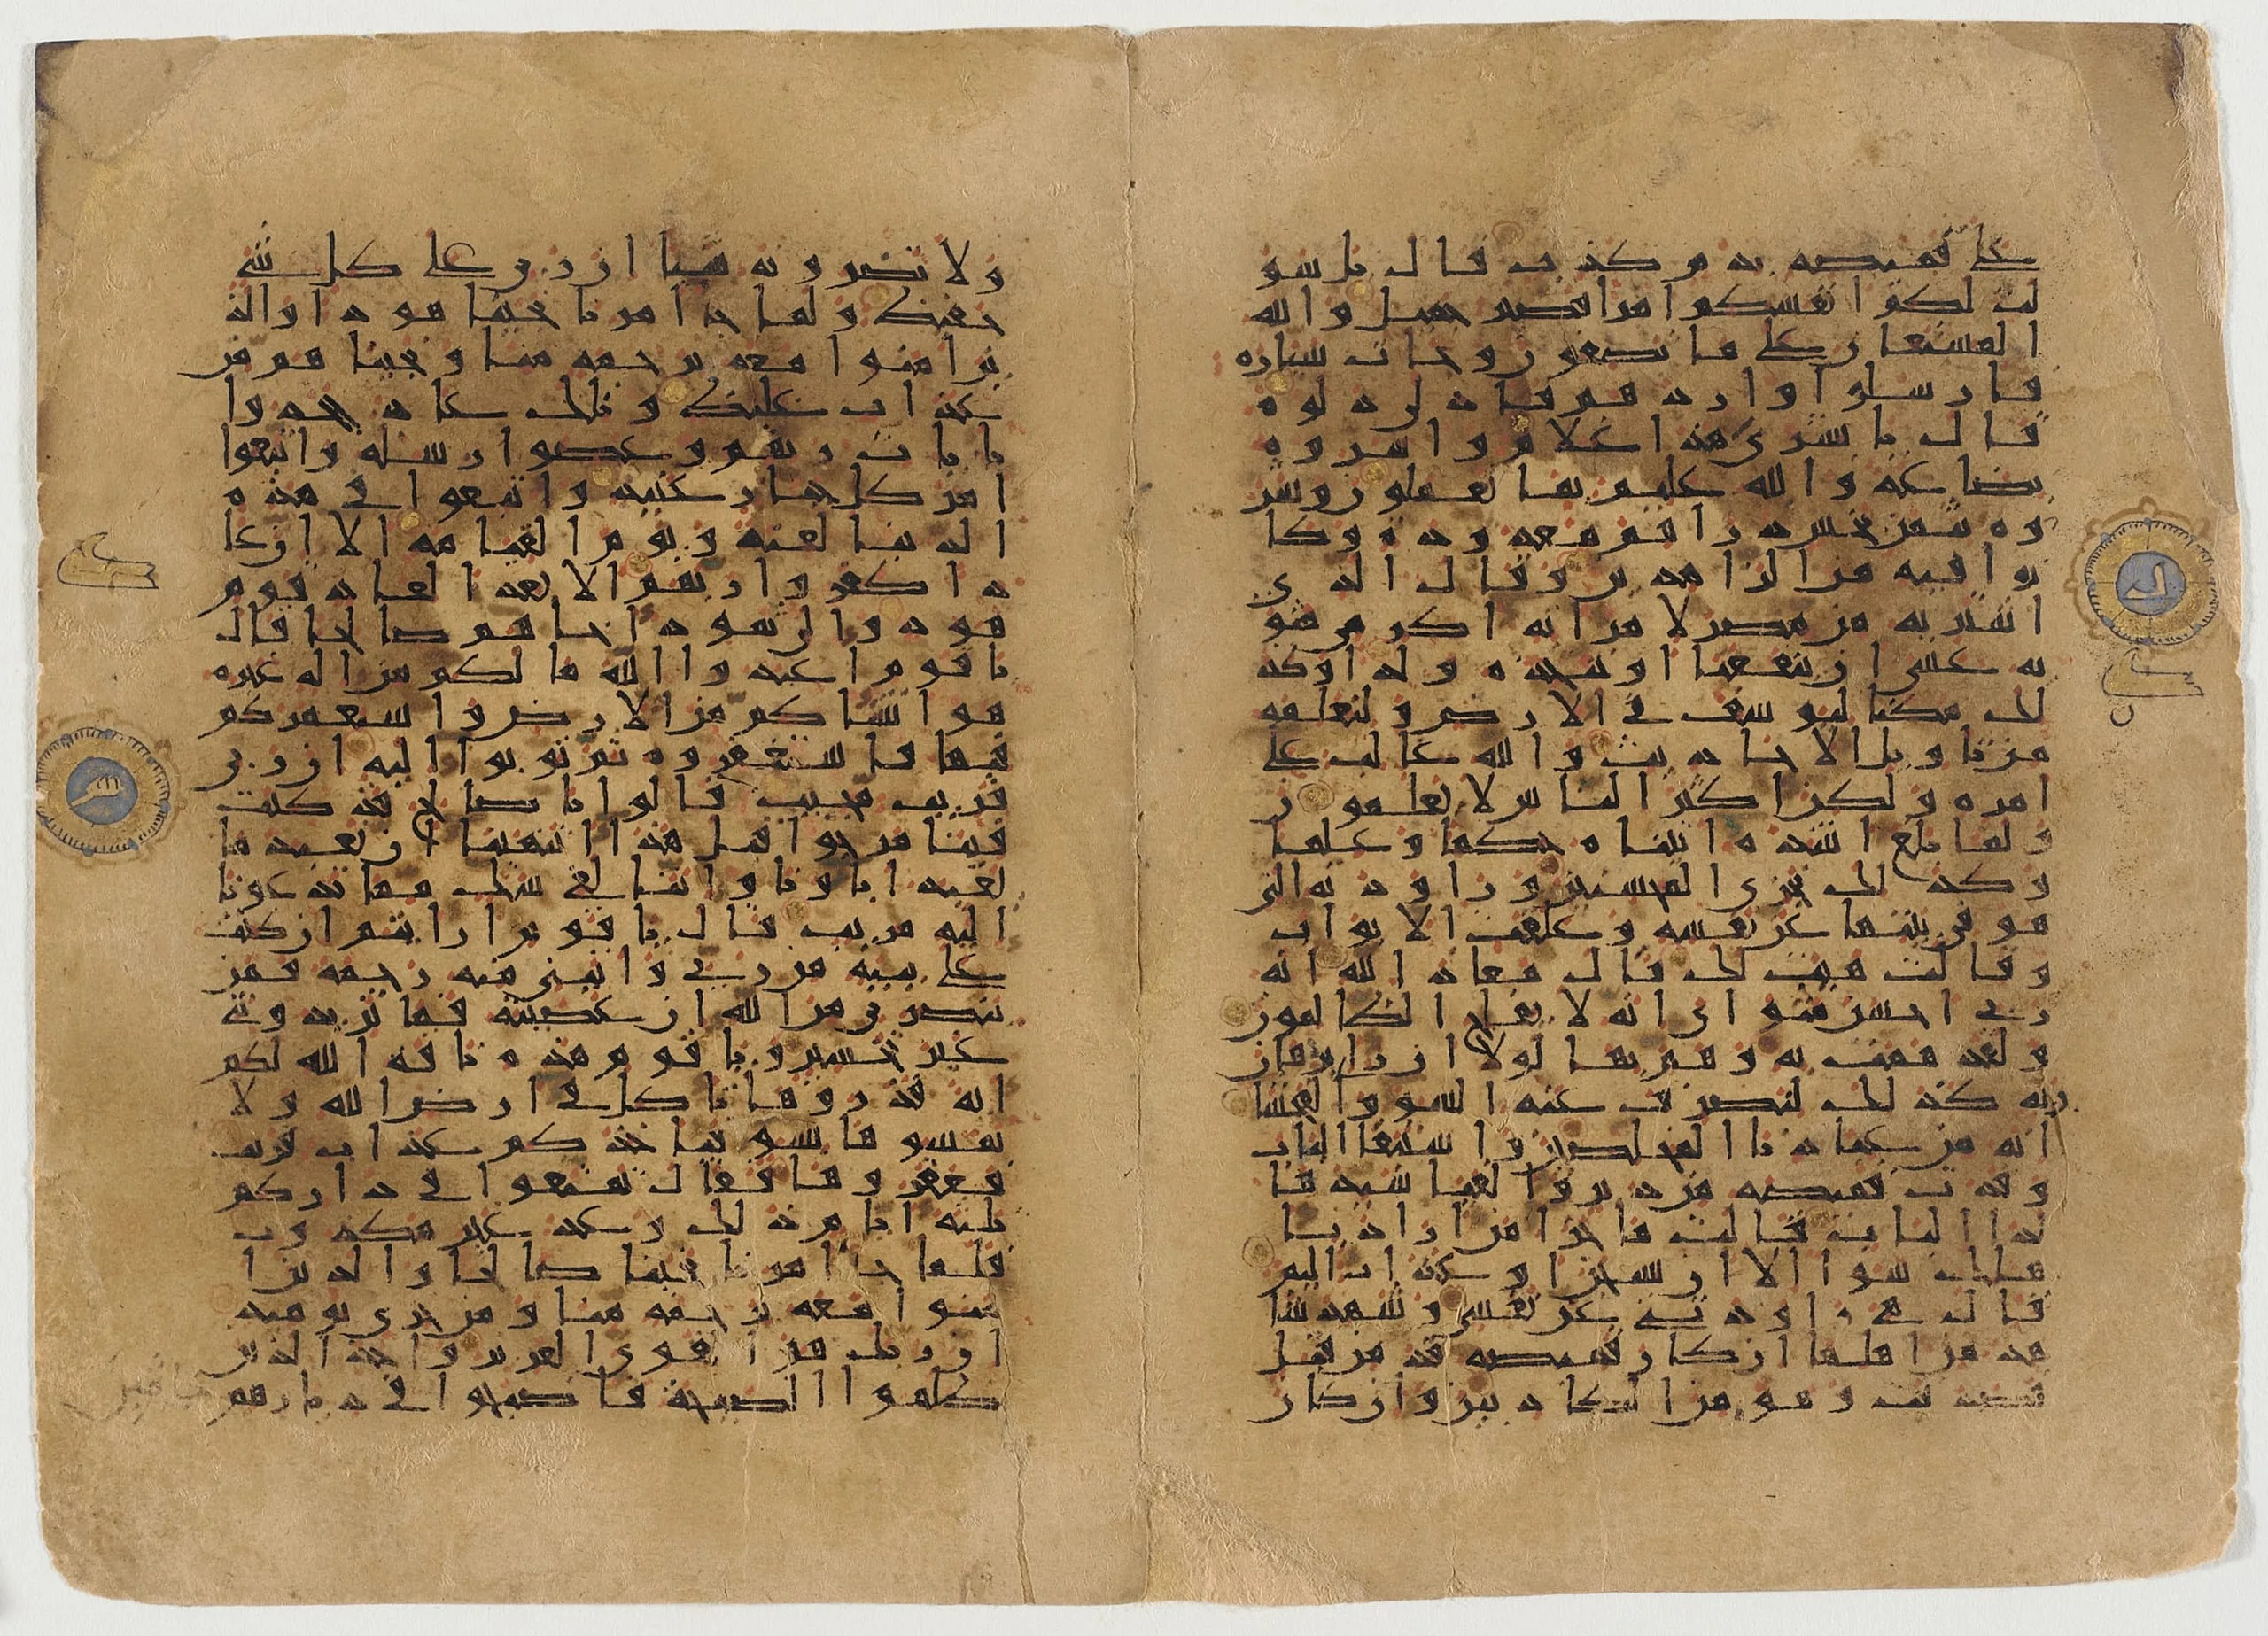 على قميصه بدم كذب قال بل سو
لت لكم انفسكم امرا فصبر جميل والله
المستعان على ما تصفون وجات سياره
فارسلوا واردهم فادلى دلوه
قال يا بشرى هذا غلام واسروه
بضاعه والله عليم بما يعملون وشر
وه بثمن بخس دراهم معدوده وكا
نوا فيه من الزاهدين وقال الذي
اشتريه من مصر لامراته اكرمي مثو
يه عسى ان ينفعنا او نتخذه ولدا وكذ
لك مكنا ليوسف في الارض ولنعلمه
من تاويل الاحاديث والله غالب على
امره ولكن اكثر الناس لا يعلمون
ولما بلغ اشده اتيناه حكما وعلما
وكذلك نجزي المحسنين وراودته التي
هو في بيتها عن نفسه وغلقت الابواب
وقالت هيت لك قال معاذ الله انه
ربي احسن مثواي انه لا يفلح الظالمون
ولقد همت به وهم بها لولا ان را برهان
ربه كذلك لنصرف عنه السو والفحشا
انه من عبادنا المخلصين واستبقا الباب
وقدت قميصه من دبر والفيا سيدها
لدا الباب قالت ما جزا من اراد با
هلك سوا الا ان يسجن او عذاب اليم
قال هي راودتني عن نفسي وشهد شا
هد من اهلها ان كان قميصه قد من قبل
فصدقت وهو من الكاذبين وان كان
ولا تضرونه شيا ان ربي على كل شي
حفيظ ولما جا امرنا نجينا هودا والذ
ين امنوا معه برحمه منا ونجيناهم من
عذاب غليظ وتلك عاد جحدوا
بايات ربهم وعصوا رسله واتبعوا
امر كل جبار عنيد واتبعوا في هذه
الدنيا لعنه ويوم القيامه الا ان عا
دا كفروا ربهم الا بعدا لعاد قوم
هود والى ثمود اخاهم صالحا قال
يا قوم اعبدوا الله ما لكم من اله غيره
هو انشاكم من الارض واستعمركم
فيها فاستغفروه ثم توبوا اليه ان ربي
قريب مجيب قالوا يا صالح قد كنت
فينا مرجوا قبل هذا اتنهينا ان نعبد ما
يعبد اباونا واننا لفي شك مما تدعونا
اليه مريب قال يا قوم ارايتم ان كنت
على بينه من ربي واتيني منه رحمه فمن
ينصرني من الله ان عصيته فما تزيدونني
غير تخسير ويا قوم هذه ناقه الله لكم
ايه فذروها تاكل في ارض الله ولا
تمسوها بسو فياخذكم عذاب قريب
فعقروها فقال تمتعوا في داركم
ثلثه ايام ذلك وعد غير مكذوب
فلما جا امرنا نجينا صالحا والذين ا
منوا معه برحمه منا ومن خزي يومئذ
ان ربك هو القوي العزيز واخذ الذين
ظلموا الصيحه فاصبحوا في ديارهم